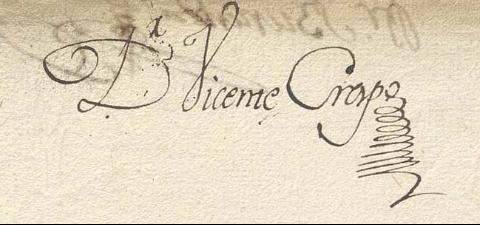 Dr Vicente Crespo